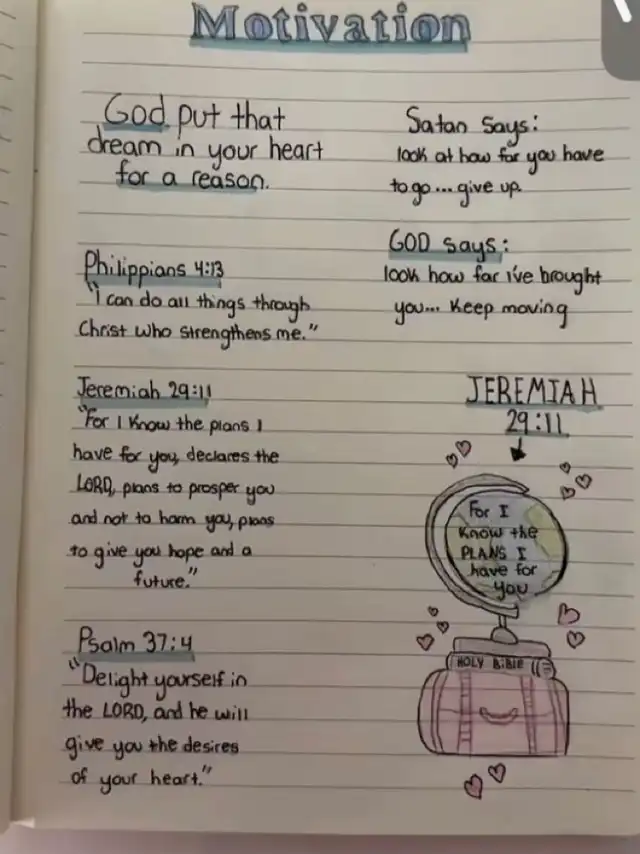 Motivation
God put that
dream in your heart
for a reason.
Philippians 4:13
"I can do all things through
Christ who strengthens me."
Jeremiah 29:11
"For I Know the plans I
have for you, declares the
LORD, plans to prosper you
and not to harm you, plans
to give you hope and a
future."
Psalm 37:4
"Delight yourself in
the LORD, and he will
give you the desires
of your heart."
Satan says:
look at how far you have
to go... give up.
GOD says:
look how far i've brought
you... Keep moving
JEREMIAH
29:11
For I
Know the
PLANS I
have for
you
HOLY BiBLE